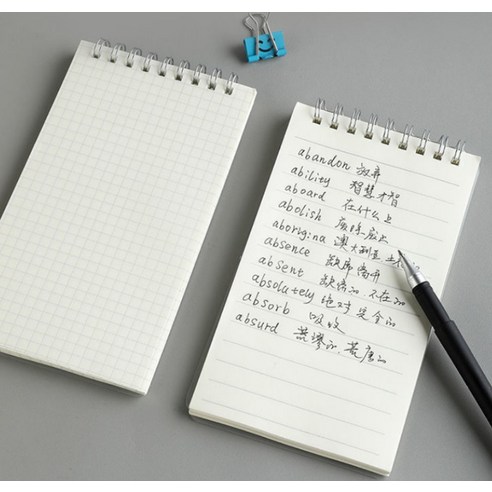 abandon 放弃
ability 智慧才智
aboard 在什么上
abolish 废除废止
aborigina 澳大利亚土
absence 缺席离开
absent 缺席的 不在的
absolutely 绝对 完全的
absorb 吸收
absurd 荒谬的，荒唐的